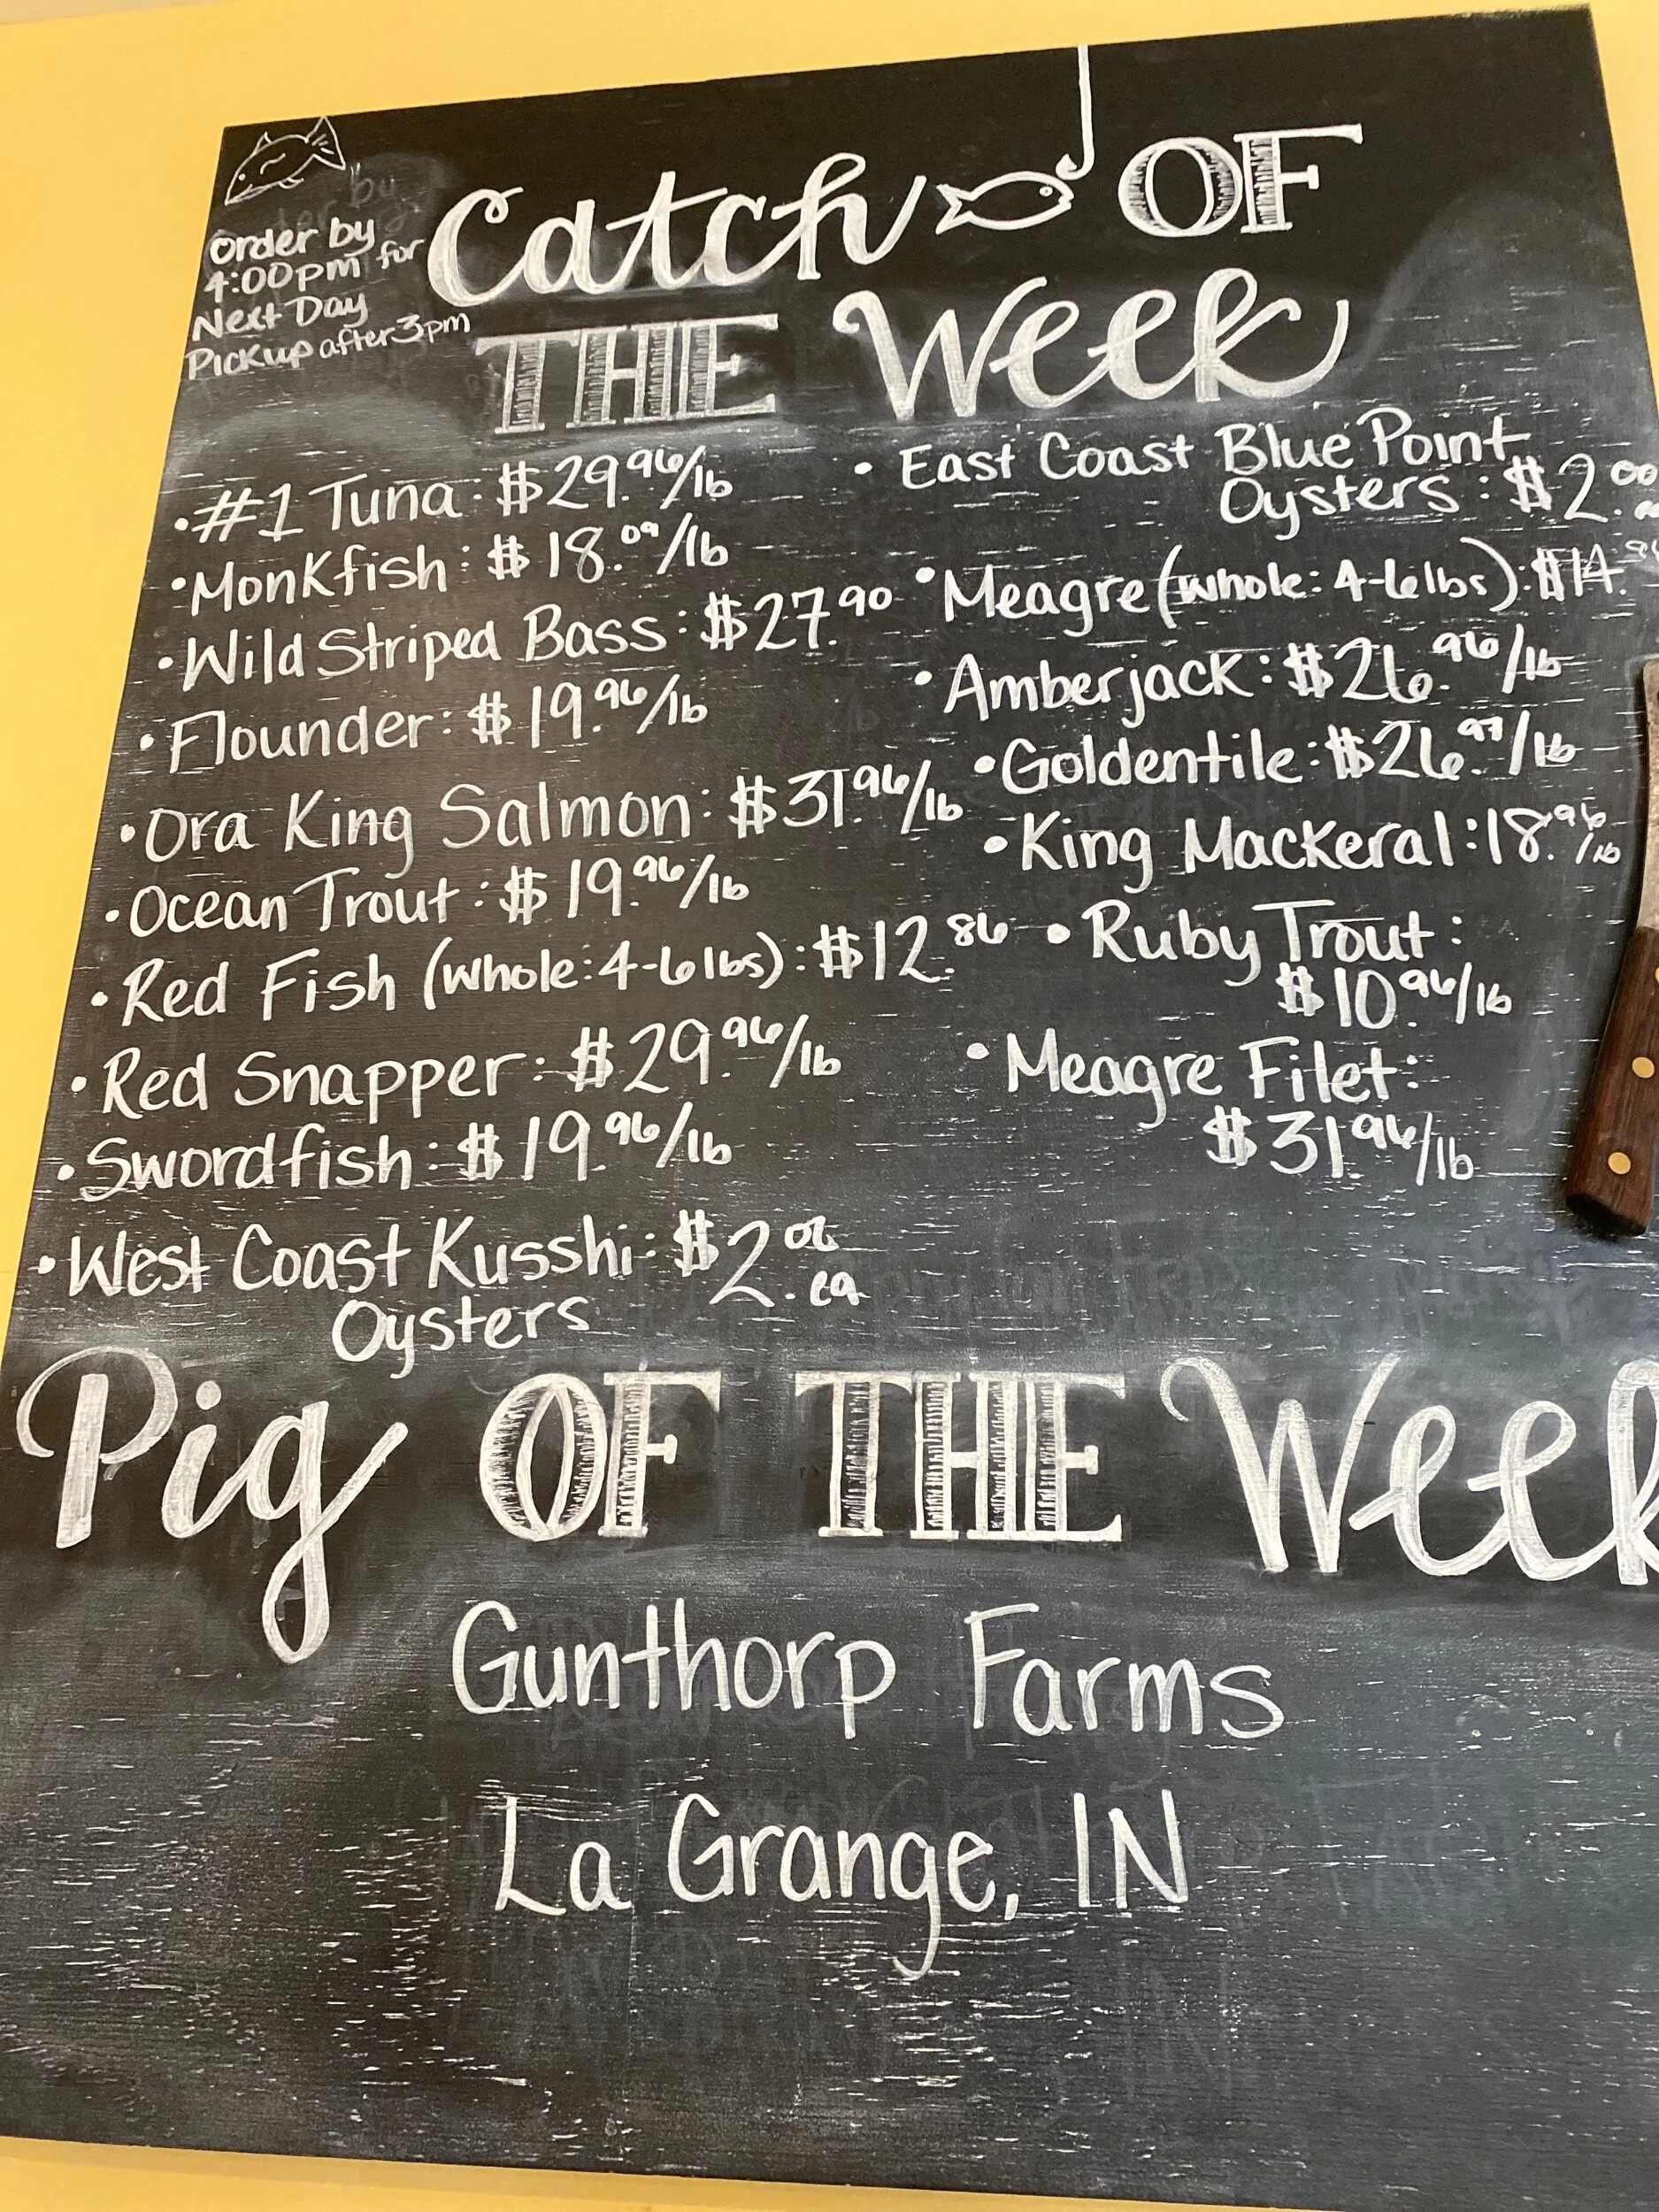 Order by
4:00pm for
Next Day
Pickup after 3pm
Catch OF
THE Week
• #1 Tuna: $29.96/lb
• Monkfish: $18.09/lb
• Wild Striped Bass: $27.90
• Flounder: $19.96/lb
• Ora King Salmon: $31.96/lb
• Ocean Trout: $19.96/lb
• Red Fish (whole: 4-6lbs): $12.86
• Red Snapper: $29.96/lb
• Swordfish: $19.96/lb
• West Coast Kusshi: $2.06 ea
Oysters
• East Coast Blue Point
Oysters: $2.00
• Meagre (whole: 4-6lbs): $14.
• Amberjack: $26.96/lb
• Goldentile: $26.97/lb
• King Mackeral: 18.96/lb
• Ruby Trout:
$10.96/lb
• Meagre Filet:
$31.96/lb
Pig OF THE Week
Gunthorp Farms
La Grange, IN